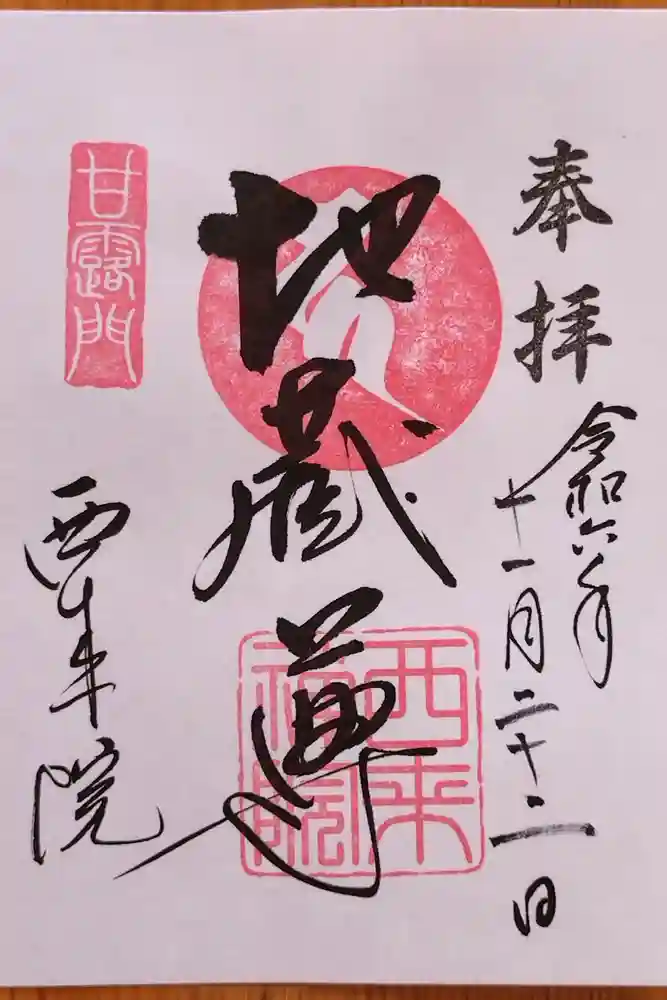 奉拝
令和六年
十一月二十二日
地蔵尊
西来
福院
甘露門
西来院